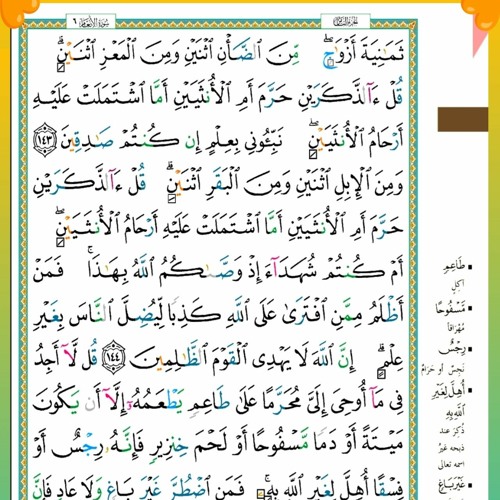 سورة الأنعام ٦
ثَمَـٰنِيَةَ أَزْوَٰجٍۖ مِّنَ ٱلضَّأْنِ ٱثْنَيْنِ وَمِنَ ٱلْمَعْزِ ٱثْنَيْنِۗ
قُلْ ءَآلذَّكَرَيْنِ حَرَّمَ أَمِ ٱلْأُنثَيَيْنِ أَمَّا ٱشْتَمَلَتْ عَلَيْهِ
أَرْحَامُ ٱلْأُنثَيَيْنِۖ نَبِّـُٔونِى بِعِلْمٍ إِن كُنتُمْ صَـٰدِقِينَ ١٤٣
وَمِنَ ٱلْإِبِلِ ٱثْنَيْنِ وَمِنَ ٱلْبَقَرِ ٱثْنَيْنِۗ قُلْ ءَآلذَّكَرَيْنِ
حَرَّمَ أَمِ ٱلْأُنثَيَيْنِ أَمَّا ٱشْتَمَلَتْ عَلَيْهِ أَرْحَامُ ٱلْأُنثَيَيْنِۖ
أَمْ كُنتُمْ شُهَدَآءَ إِذْ وَصَّىٰكُمُ ٱللَّهُ بِهَـٰذَاۚ فَمَنْ
أَظْلَمُ مِمَّنِ ٱفْتَرَىٰ عَلَى ٱللَّهِ كَذِبًا لِّيُضِلَّ ٱلنَّاسَ بِغَيْرِ
عِلْمٍۗ إِنَّ ٱللَّهَ لَا يَهْدِى ٱلْقَوْمَ ٱلظَّـٰلِمِينَ ١٤٤ قُل لَّآ أَجِدُ
فِى مَآ أُوحِىَ إِلَىَّ مُحَرَّمًا عَلَىٰ طَاعِمٍ يَطْعَمُهُۥٓ إِلَّآ أَن يَكُونَ
مَيْتَةً أَوْ دَمًا مَّسْفُوحًا أَوْ لَحْمَ خِنزِيرٍ فَإِنَّهُۥ رِجْسٌ أَوْ
فِسْقًا أُهِلَّ لِغَيْرِ ٱللَّهِ بِهِۦۚ فَمَنِ ٱضْطُرَّ غَيْرَ بَاغٍ وَلَا عَادٍ فَإِنَّ
طَاعِمٍ
آكِلٍ
مَّسْفُوحًا
مُهْرَاقًا
رِجْسٌ
نَجِسٌ أو حَرَامٌ
أُهِلَّ لِغَيْرِ
ٱللَّهِ بِهِ
ذُكِرَ عند
ذبحه غيرُ
اسمه تعالى
غَيْرَ بَاغٍ